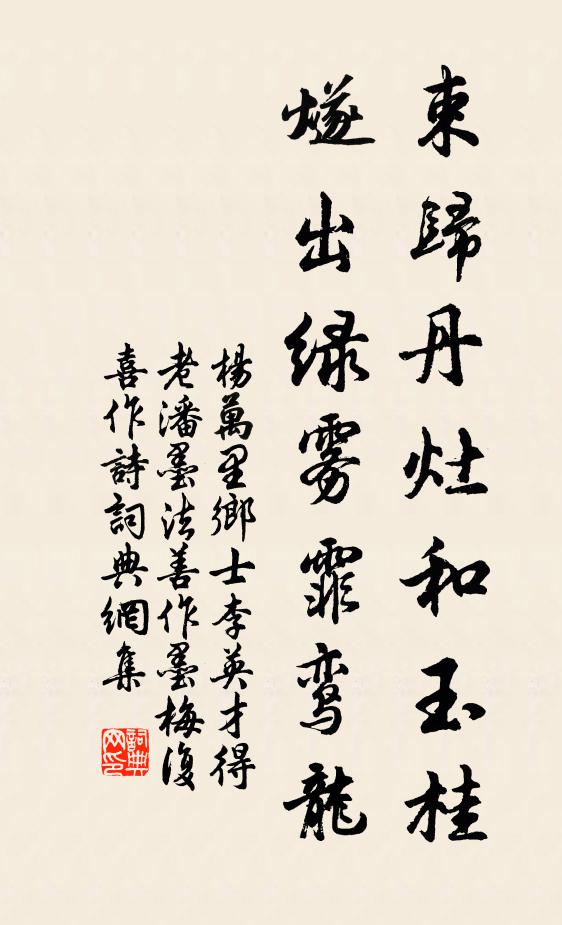 東歸丹灶和玉桂
燧出绿雾霏鸾龍
楊萬里鄉士李英才得
老潘墨法善作墨梅復
喜作詩詞典網集
詞典网印